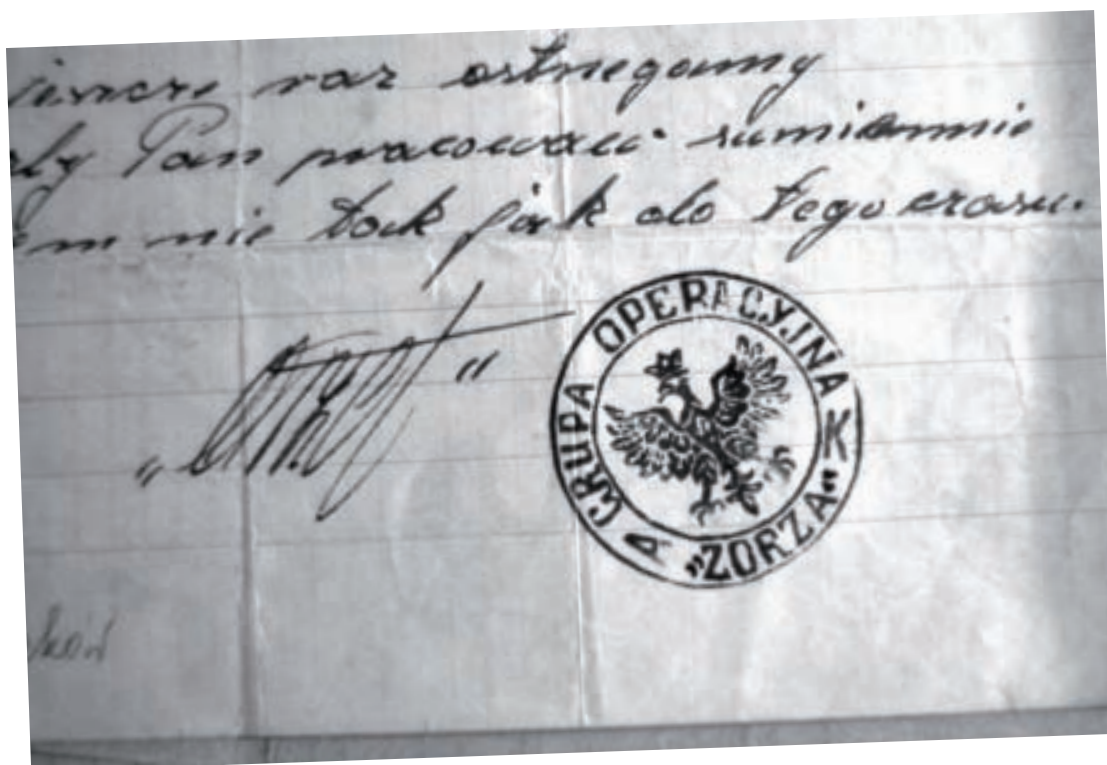 raz ostrzegamy
Pan pracował sumiennie
nie tak jak do tego czasu.
GRUPA OPERACYJNA AK „ZORZA“